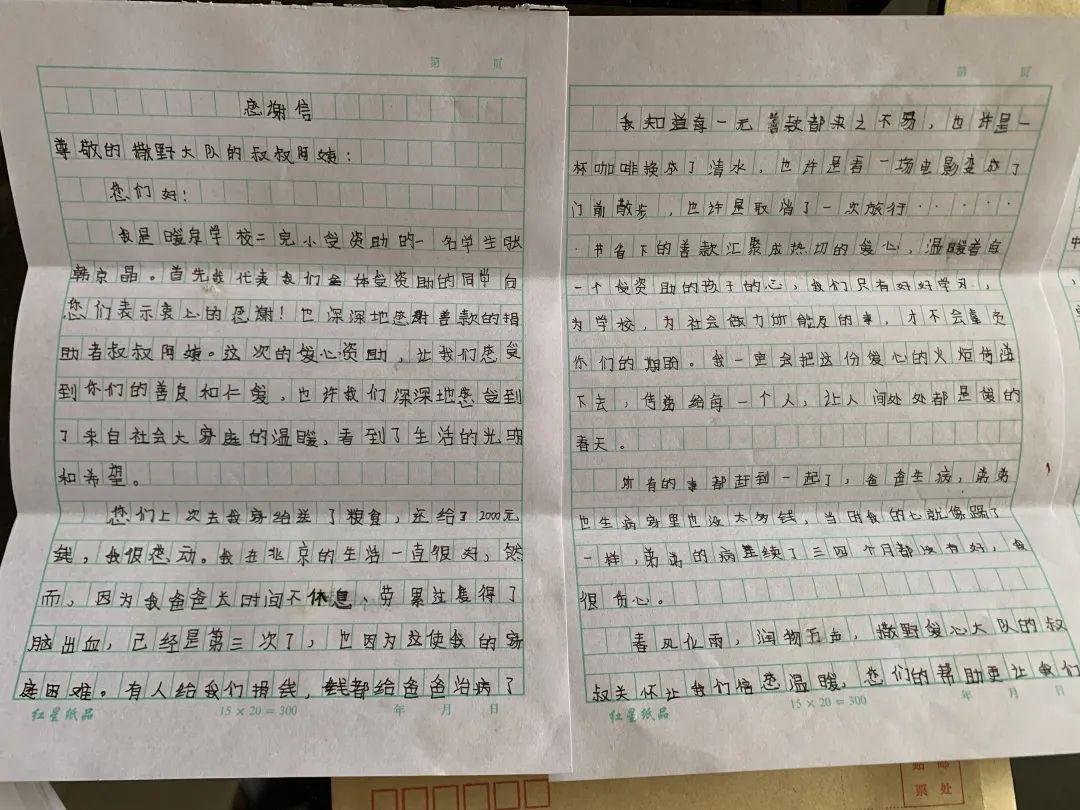 第 页
感谢信
尊敬的撒野大队的叔叔阿姨：
您们好！
我是暖泉学校二完小受资助的一名学生张
韩京晶。首先我代表我们全体受资助的同学向
您们表示衷心的感谢！也深深地感谢善款的捐
助者叔叔阿姨。这次的爱心资助，让我们感受
到你们的善良和仁爱，也许我们深深地感觉到
了来自社会大家庭的温暖，看到了生活的光明
和希望。
您们上次去我家给送了粮食，还给了2000元
钱，我很感动。我在北京的生活一直很好，然
而，因为我爸爸长时间不休息、劳累过度得了
脑出血，已经是第三次了，也因为这使我的家
庭困难。有人给我们捐钱，钱都给爸爸治病了
红星纸品 15×20＝300 年 月 日
第 页
我知道每一元善款都来之不易，也许是一
杯咖啡换成了清水，也许是看一场电影变成了
门前散步，也许是取消了一次旅行······
·节省下的善款汇聚成热切的爱心，温暖着每
一个受资助的孩子的心，我们只有好好学习，
为学校，为社会做力所能及的事，才不会辜负
你们的期盼。我一定会把这份爱心的火炬传递
下去，传递给每一个人，让人间处处都是暖的
春天。
所有的事都赶到一起了，爸爸生病，弟弟
也生病家里也没太多钱，当时我的心就像蹋了
一样，弟弟的病连续了三四个月都没有好，我
很伤心。
春风化雨，润物无声，撒野爱心大队的叔
叔关怀让我们倍感温暖，您们的帮助更让我们
红星纸品 15×20＝300 年 月 日